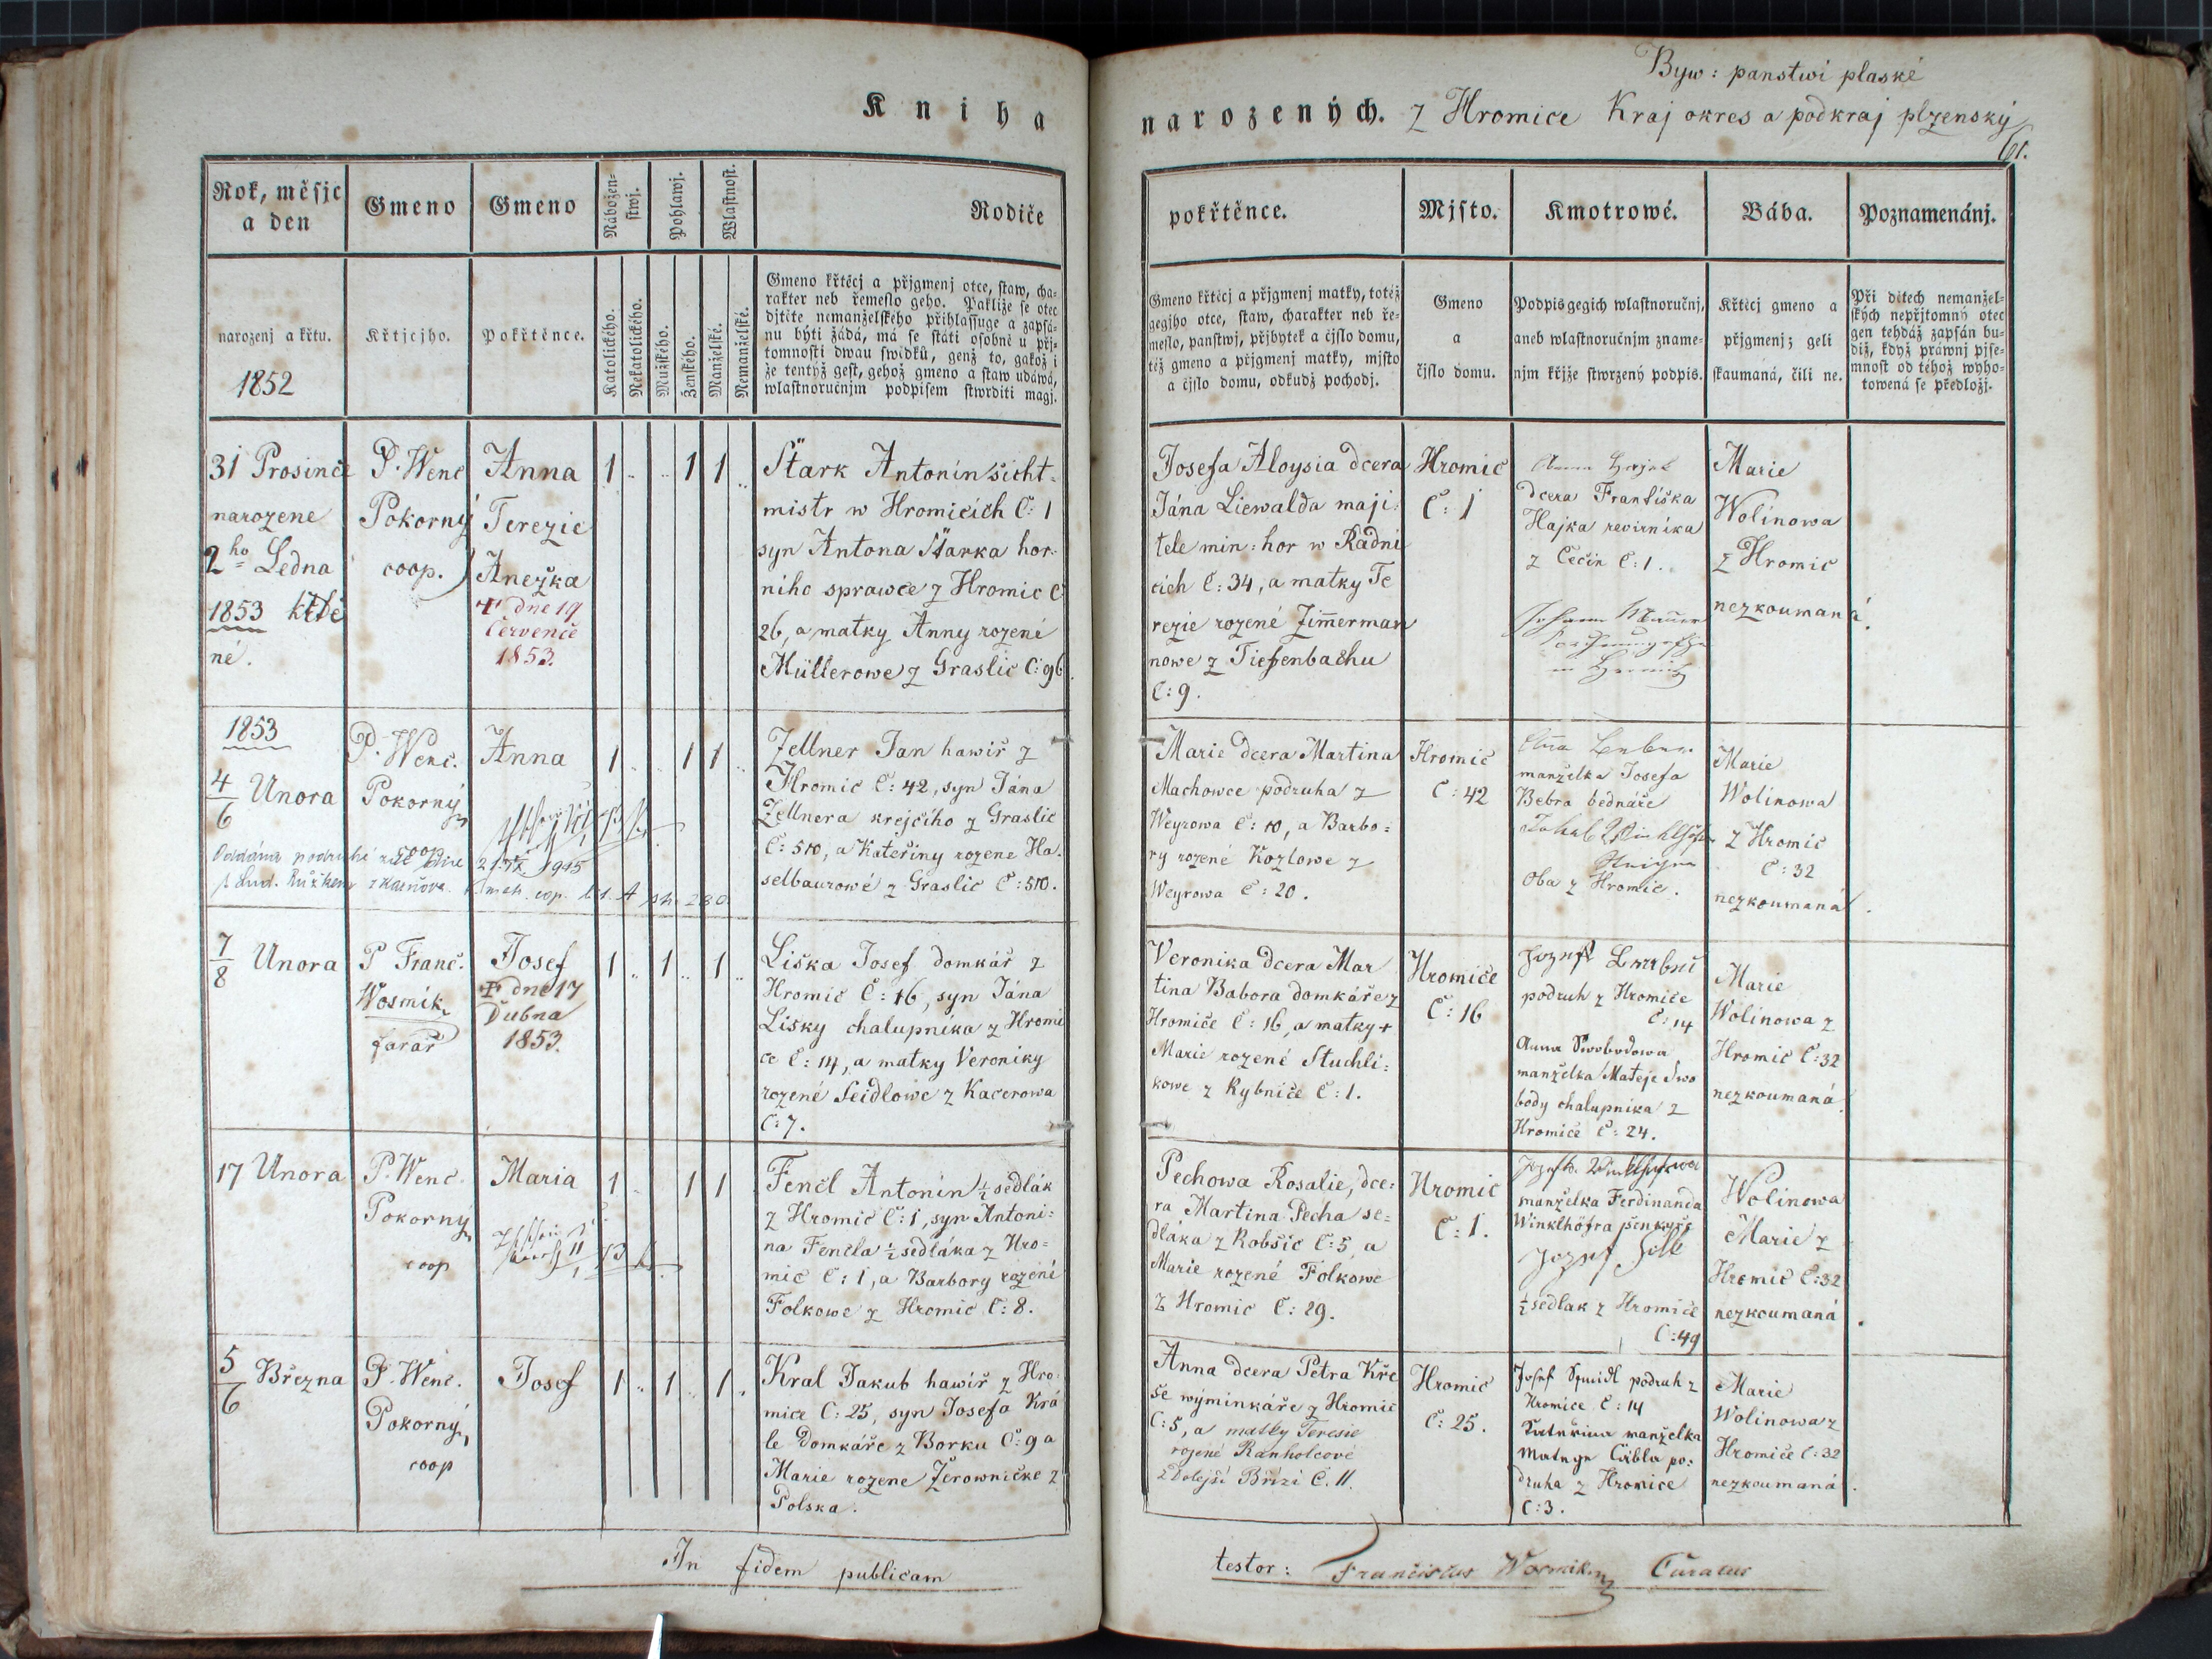 Kniha
Byw: panstwi plaské
narozených. z Hromice Kraj okres a podkraj plzenský
61.
Rok, měsjc
a den
Gmeno
Gmeno
Nábožen-
stwj.
Pohlawj.
Wlastnost.
Rodiče
narozenj a křtu.
1852
Křtjcjho.
Pokřtěnce.
Katolického.
Nekatolického.
Mužského.
Ženského.
Manželské.
Nemanželské.
Gmeno křtěcj a přjgmenj otce, staw, cha-
rakter neb řemeslo geho. Pakliže se otec
djtěte nemanželského přihlassuge a zapsá-
nu býti žádá, má se státi osobně u přj-
tomnosti dwau swědků, genž to, gakož i
že tentýž gest, gehož gmeno a staw udáwá,
wlastnoručnjm podpisem stwrditi magj.
pokřtěnce.
Mjsto.
Kmotrowé.
Bába.
Poznamenánj.
Gmeno křtěcj a přjgmenj matky, totéž
gegjho otce, staw, charakter neb ře-
meslo, panstwj, přjbytek a čjslo domu,
též gmeno a přjgmenj matky, mjsto
a čjslo domu, odkudž pochodj.
Gmeno
a
čjslo domu.
Podpis gegich wlastnoručnj,
aneb wlastnoručnjm zname-
njm křjže stwrzený podpis.
Křtěcj gmeno a
přjgmenj; geli
skaumaná, čili ne.
Při dětech nemanžel-
ských nepřjtomný otec
gen tehdáž zapsán bu-
diž, když práwnj pjse-
mnost od téhož wyho-
towená se předložj.
31 Prosince
narozene
2ho Ledna
1853 křtě
né.
P. Wenc
Pokorný
coop.
Anna
Terezie
Anežka
† dne 19
Července
1853.
1 .. .. 1 1 ..
Stark Antonín šicht-
mistr w Hromicích Č: 1
syn Antona Starka hor-
niho sprawce z Hromic č
26, a matky Anny rozené
Müllerowe z Graslic Č: 96.
Josefa Aloysia dcera
Jána Liewalda maji:
tele min: hor w Radni
cích č: 34, a matky Te
rezie rozené Zimerman
nowe z Tiefenbachu
č: 9.
Hromic
č: 1
dcera Františka
Hajka revirníka
z Čečin č: 1.
Marie
Wolínowa
z Hromic
nezkoumaná.
1853
4/6 Unora
P. Wenc.
Pokorný
coop
Anna
Oddána podruhé dne 21. 1945
s Lud. Růžkem
1 .. .. 1 1 ..
Zellner Jan hawíř z
Hromic č: 42, syn Jána
Zellnera krejčího z Graslic
č: 510, a Kateřiny rozene Ha-
selbaurowé z Graslic č: 510.
Marie dcera Martina
Machowce podruha z
Weyrowa č: 10, a Barbo:
ry rozené Kozlowe z
Weyrowa č: 20.
Hromic
č: 42
manželka Josefa
Bebra bednáře
Oba z Hromic.
Marie
Wolínowa
z Hromic
č: 32
nezkoumaná.
7/8 Unora
P Franc.
Wosmík
farář
Josef
† dne 17
Dubna
1853.
1 .. 1 .. 1 ..
Liška Josef domkář z
Hromic č: 16, syn Jána
Lisky chalupníka z Hromi
ce č: 14, a matky Veroniky
rozené Seidlowe z Kacerowa
č: 7.
Veronika dcera Mar
tina Babora domkáře z
Hromice č: 16, a matky †
Marie rozené Stuchli:
kowe z Rybnice č: 1.
Hromice
č: 16
podruh z Hromice
č: 14
Anna Swobodowa
manželka Mateje Swo
body chalupníka z
Hromice č: 24.
Marie
Wolínowa z
Hromic č: 32
nezkoumaná.
17 Unora
P. Wenc.
Pokorný
coop
Maria
1 .. .. 1 1 ..
Fencl Antonín ½ sedlák
z Hromic č: 1, syn Antoni:
na Fencla ½ sedláka z Hro=
mic č: 1, a Barbory rozené
Folkowe z Hromic č: 8.
Pechowa Rosalie, dce:
ra Martina Pecha se=
dláka z Robšic č: 5, a
Marie rozené Folkowe
z Hromic č: 29.
Hromic
č: 1.
manželka Ferdinanda
Winklhöfra šenkýře
½ sedlak z Hromice
č: 49
Wolínowa
Marie z
Hromic č: 32
nezkoumaná.
5/6 Března
P. Wenc.
Pokorný
coop
Josef
1 .. 1 .. 1 ..
Kral Jakub hawíř z Hro-
mice č: 25, syn Josefa Krá
le Domkáře z Borku č: 9 a
Marie rozene Žerowničke z
Polska.
Anna dcera Petra Kře
še wýminkáře z Hromic
č: 5, a matky Teresie
rozené Ranholcové
z Dolejší Břízí č. 11.
Hromic
č: 25.
Josef Šmidl podruh z
Hromice č: 14
manželka
po:
druha z Hromice
č: 3.
Marie
Wolínowa z
Hromice č: 32
nezkoumaná.
In fidem publicam
testor: Franciscus Wosmik Curatus